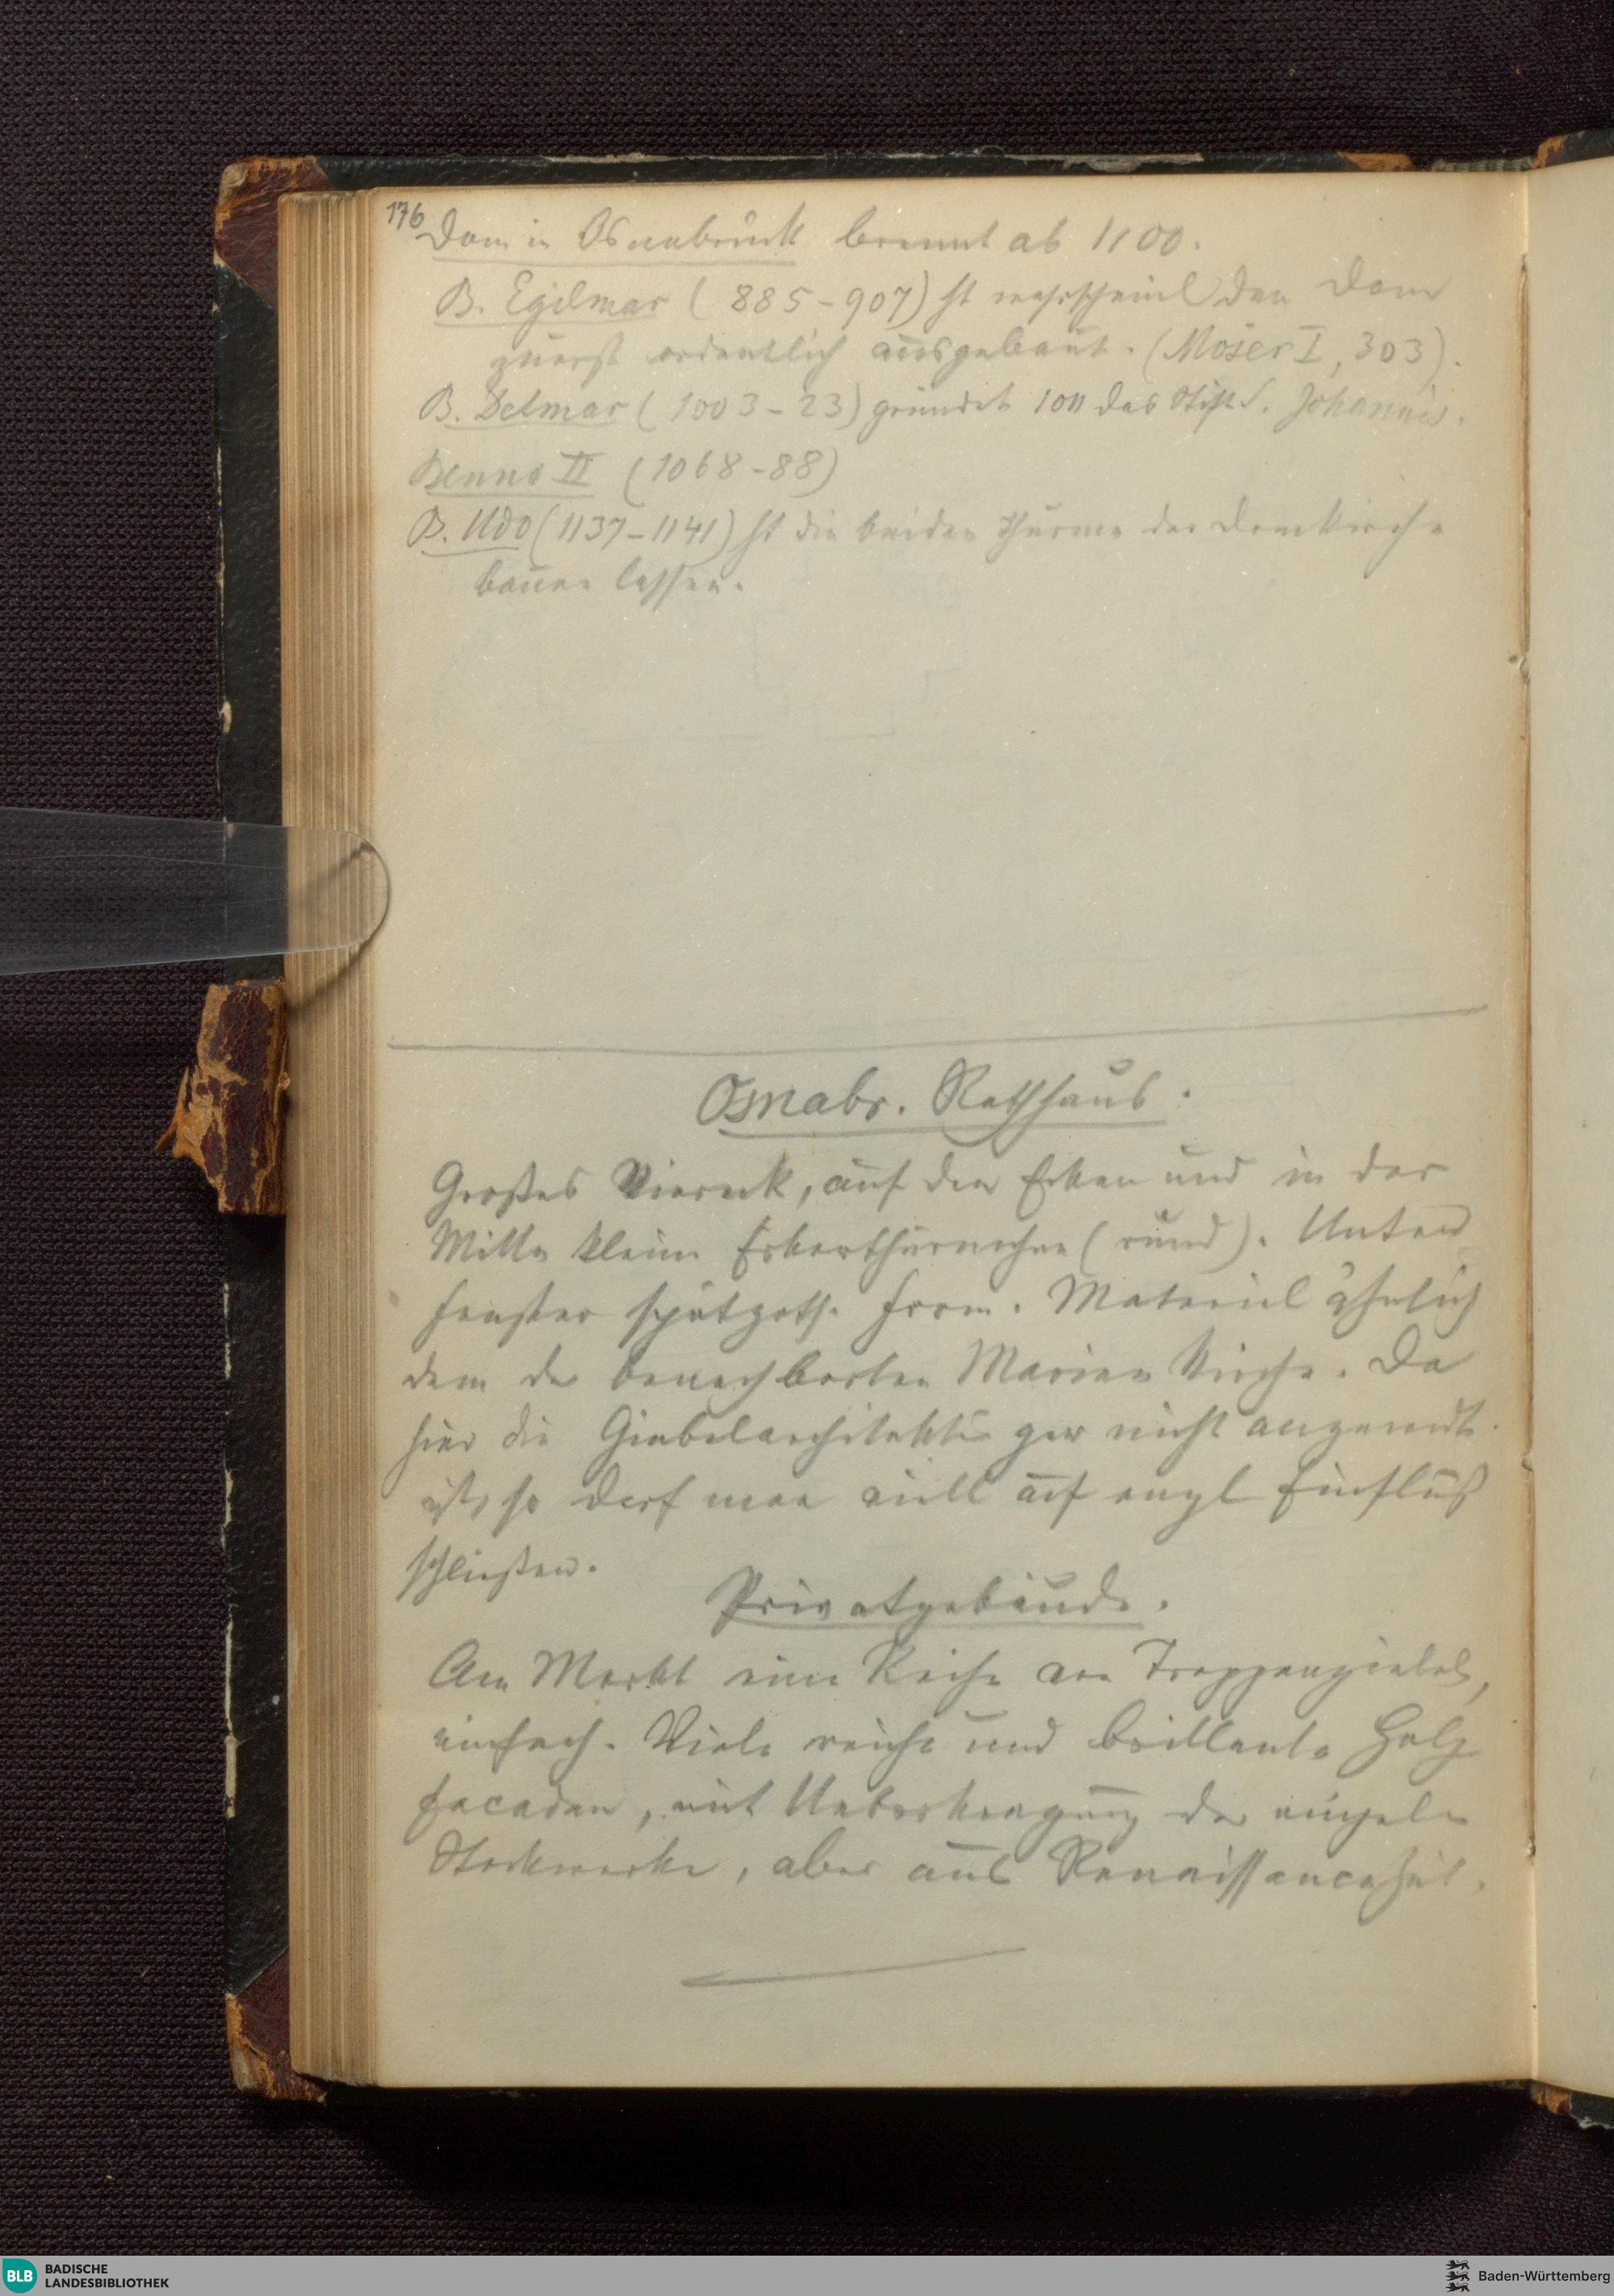 176
Dom in Osnabrück brennt ab 1100.
B. Egilmar (885-907) ht wahrscheinl den Dom
zuerst ordentlich ausgebaut. (Möser I, 303).
B. Detmar (1003-23) gründet 1011 das Stift S. Johannis.
Benno II (1068-88)
B. Udo (1137-1141) ht die beiden Thürme der Domkirche
bauen lassen.
Osnabr. Rathhaus.
Großes Viereck, auf den Ecken und in der
Mitte kleine Erkerthürmchen (rund). Unten
Fenster spätgoth. Form. Material ähnlich
dem der benachbarten Marien Kirche. Da
hier die Giebelarchitektur gar nicht angewendt
ist, so darf man viell auf engl Einfluß
schließen.
Privatgebäude.
Am Markt eine Reihe von Treppengiebel,
einfach. Viele reiche und brillante Holz
facaden, mit Ueberkragung der einzeln
Stockwerke, aber aus Renaissancezeit.
BLB BADISCHE
LANDESBIBLIOTHEK
Baden-Württemberg